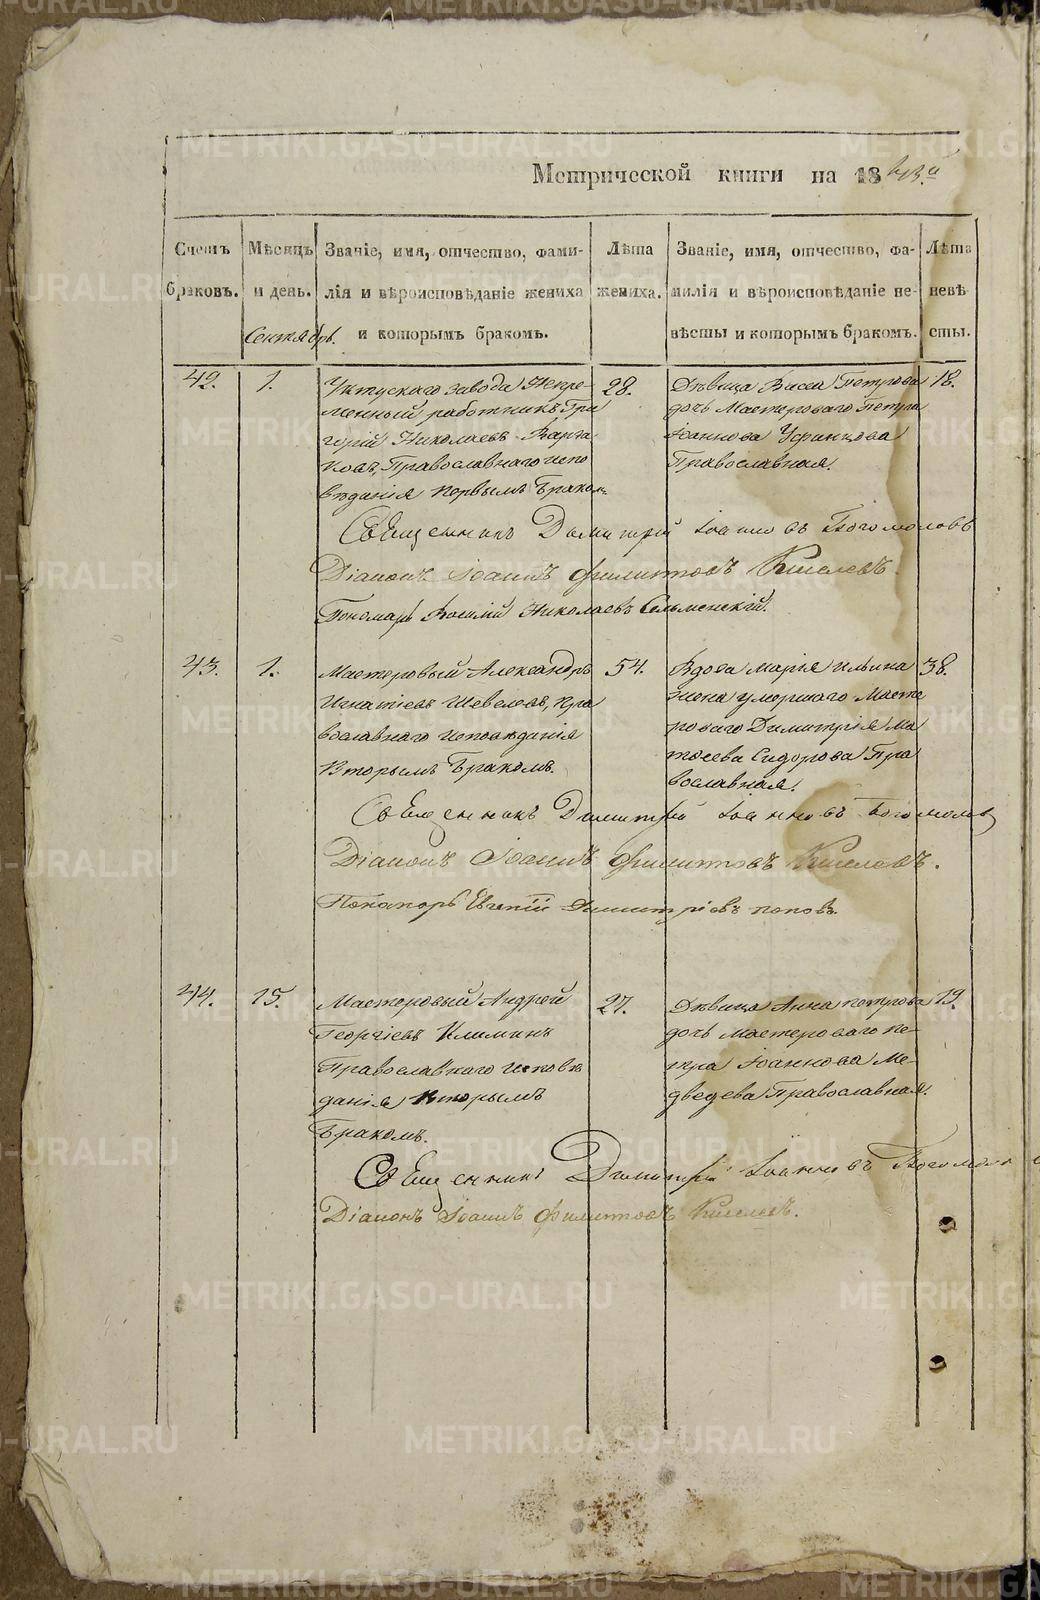 Метрической книги на 18
Счетъ браковъ.
Мѣсяцъ и день.
Званіе, имя, отчество, фамилія и вѣроисповѣданіе жениха и которымъ бракомъ.
Лѣта жениха.
Званіе, имя, отчество, фамилія и вѣроисповѣданіе невѣсты и которымъ бракомъ.
Лѣта невѣсты.
Сентябрь.
42.
1.
Уктускаго завода Непре
менный работникъ Гри
горій Николаевъ
Православнаго испо
вѣданія первымъ бракомъ
28.
Дѣвица Васса Петрова
дочь Мастероваго Петра
Іоаннова
Православная.
18.
Священникъ Димитрій Іоанновъ Богомоловъ
Діаконъ Іоаннъ Филиповъ Киселевъ.
Пономарь Василій Николаевъ Сельменскій.
43.
1.
Мастеровый Александръ
Игнатіевъ Шевелевъ, пра
вославнаго исповѣданія
вторымъ бракомъ.
54.
Вдова Марія Ильина
жена умершаго Масте
роваго Димитрія Ма
тѳеева Сидорова Пра
вославная.
38.
Священникъ Димитрій Іоанновъ Богомоловъ
Діаконъ Іоаннъ Филиповъ Киселевъ.
Пономарь Евгеній Димитріевъ Поповъ.
44.
15.
Мастеровый Андрей
Георгіевъ Климинъ
Православнаго исповѣ
данія вторымъ
бракомъ.
27.
Дѣвица Анна Петрова
дочь Мастероваго Пе
тра Іоаннова Ме-
дведева Православная.
19.
Священникъ Димитрій Іоанновъ Богомолов
Діаконъ Іоаннъ Филиповъ Киселевъ.
METRIKI.GASO-URAL.RU